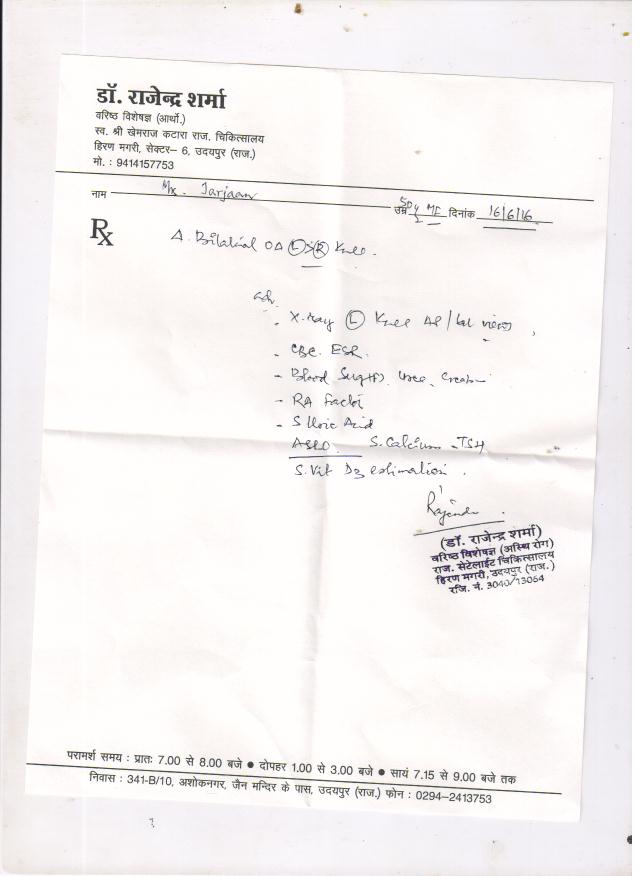 डॉ. राजेन्द्र शर्मा
वरिष्ठ विशेषज्ञ (आर्थो.)
स्व. श्री खेमराज कटारा राज. चिकित्सालय
हिरण मगरी, सेक्टर– 6, उदयपुर (राज.)
मो. : 9414157753
नाम Mr. Jarjaan उम्र 50y दिनांक 16/6/16
Rx
Δ. Bilateral OA (L)>(R) Knee.
adv.
- X-ray (L) Knee AP/Lat views,
- CBC. ESR.
- Blood Urea
- RA factor
- S Uric Acid
ASLO. S. Calcium - TSH
S. Vit D3 estimation.
(डॉ. राजेन्द्र शर्मा)
वरिष्ठ विशेषज्ञ (अस्थि रोग)
राज. सेटेलाईट चिकित्सालय
हिरण मगरी, उदयपुर (राज.)
रजि. नं. 3040/13064
परामर्श समय : प्रातः 7.00 से 8.00 बजे ● दोपहर 1.00 से 3.00 बजे ● सायं 7.15 से 9.00 बजे तक
निवास : 341-B/10, अशोकनगर, जैन मन्दिर के पास, उदयपुर (राज.) फोन : 0294-2413753